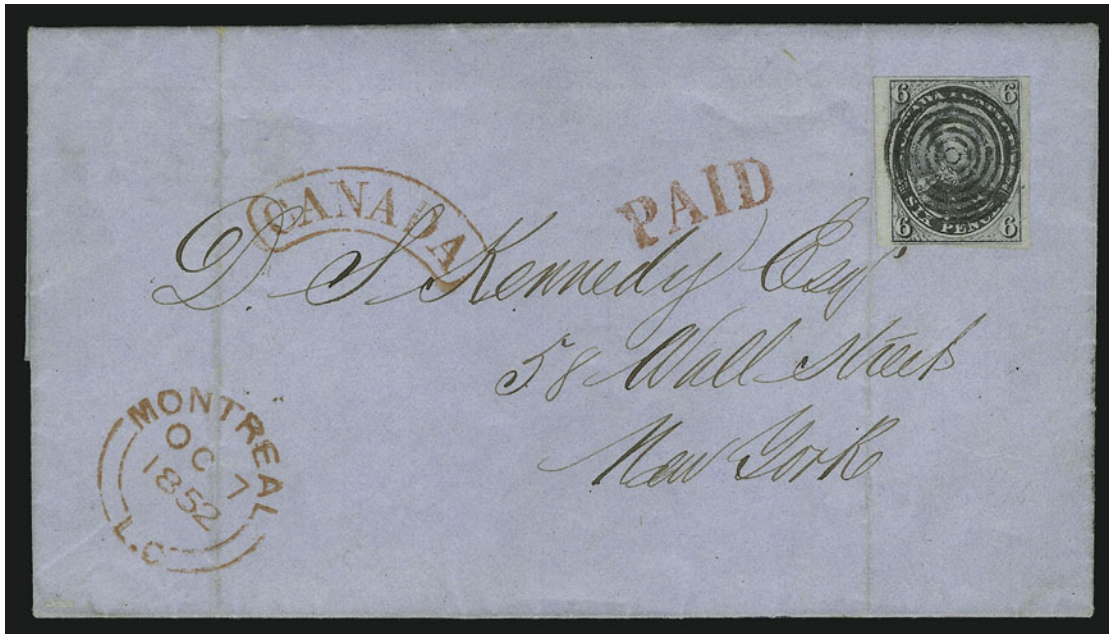 6 6
CANADA POSTAGE
SIX PENCE
6 6
CANADA
PAID
D. S Kennedy Esqr
58 Wall Street
New York
MONTREAL
OC 7
1852
L.C